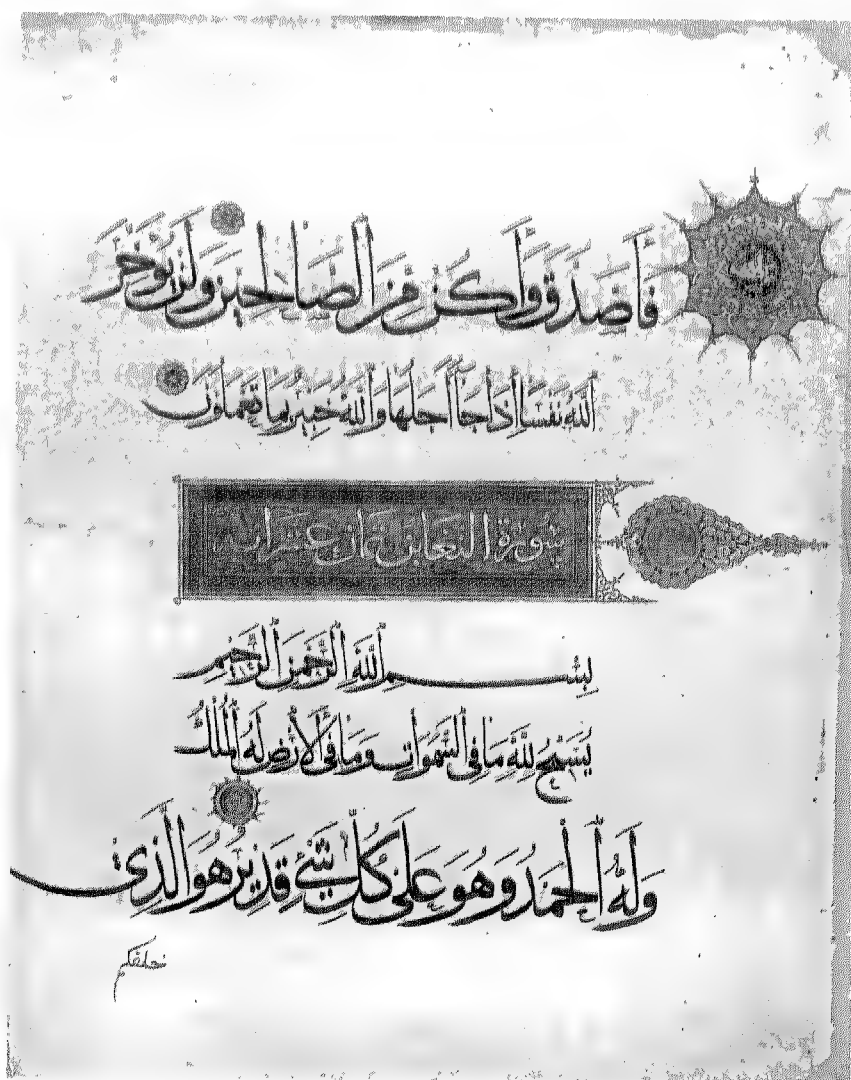 فَأَصَّدَّقَ وَأَكُنْ مِنَ الصَّالِحِينَ وَلَنْ يُؤَخِّرَ
اللَّهُ نَفْسًا إِذَا جَآءَ أَجَلُهَا وَاللَّهُ خَبِيرٌ بِمَا تَعْمَلُونَ
سورة التغابن ثمان عشر اية
بِسْمِ اللَّهِ الرَّحْمَنِ الرَّحِيمِ
يُسَبِّحُ لِلَّهِ مَا فِي السَّمَوَاتِ وَمَا فِي الْأَرْضِ لَهُ الْمُلْكُ
وَلَهُ الْحَمْدُ وَهُوَ عَلَى كُلِّ شَيْءٍ قَدِيرٌ هُوَ الَّذِي
خلقكم